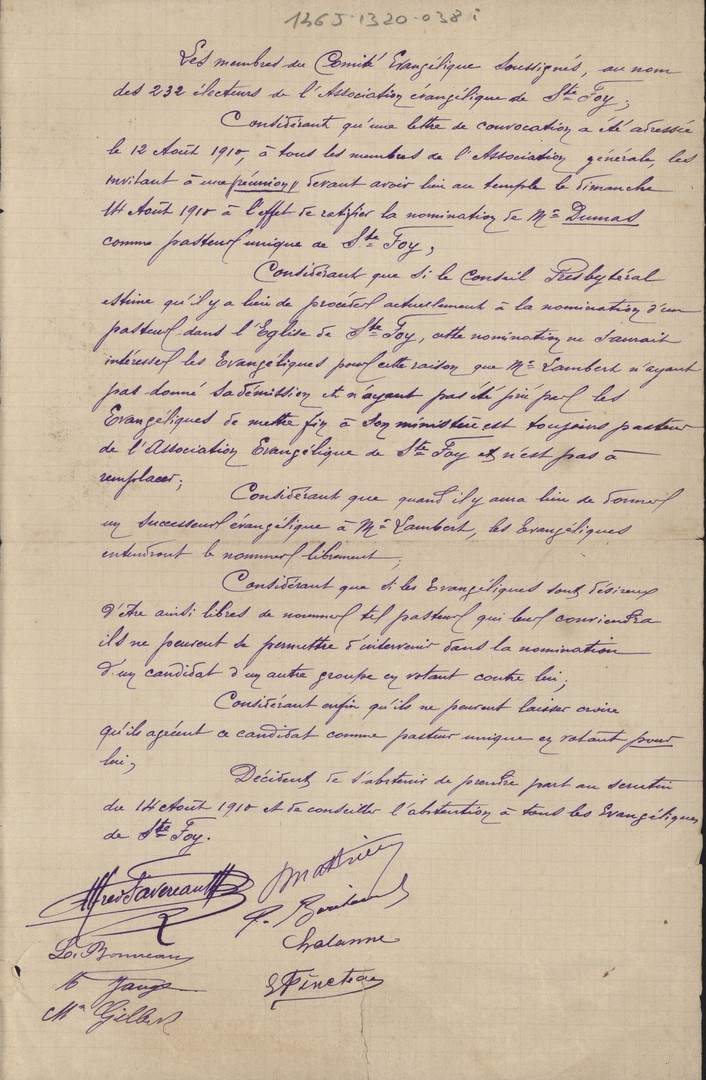 146J-1320-038 i
Les membres du Comité Evangélique soussignés, au nom
des 232 électeurs de l'Association évangélique de Ste Foy;
Considérant qu'une lettre de convocation a été adressée
le 12 Août 1910, à tous les membres de l'Association générale, les
invitant à une réunion devant avoir lieu au temple le dimanche
14 Août 1910 à l'effet de ratifier la nomination de Mr Dumas
comme pasteur unique de Ste Foy;
Considérant que si le Conseil Presbytéral
estime qu'il y a lieu de procéder actuellement à la nomination d'un
pasteur dans l'Eglise de Ste Foy, cette nomination ne saurait
intéresser les Evangéliques pour cette raison que Mr Lambert n'ayant
pas donné sa démission et n'ayant pas été prié par les
Evangéliques de mettre fin à son ministère est toujours pasteur
de l'Association Evangélique de Ste Foy et n'est pas à
remplacer;
Considérant que quand il y aura lieu de donner
un successeur évangélique à Mr Lambert, les Evangéliques
entendront le nommer librement;
Considérant que si les Evangéliques sont désireux
d'être ainsi libres de nommer tel pasteur qui leur conviendra
ils ne peuvent se permettre d'intervenir dans la nomination
d'un candidat d'un autre groupe en votant contre lui;
Considérant enfin qu'ils ne peuvent laisser croire
qu'ils agréent ce candidat comme pasteur unique en votant pour
lui;
Décident de s'abstenir de prendre part au scrutin
du 14 Aout 1910 et de conseiller l'abstention à tous les Evangéliques
de Ste Foy.
Alfred Favereau
L. Bonneau
Chalanne
Gilbert